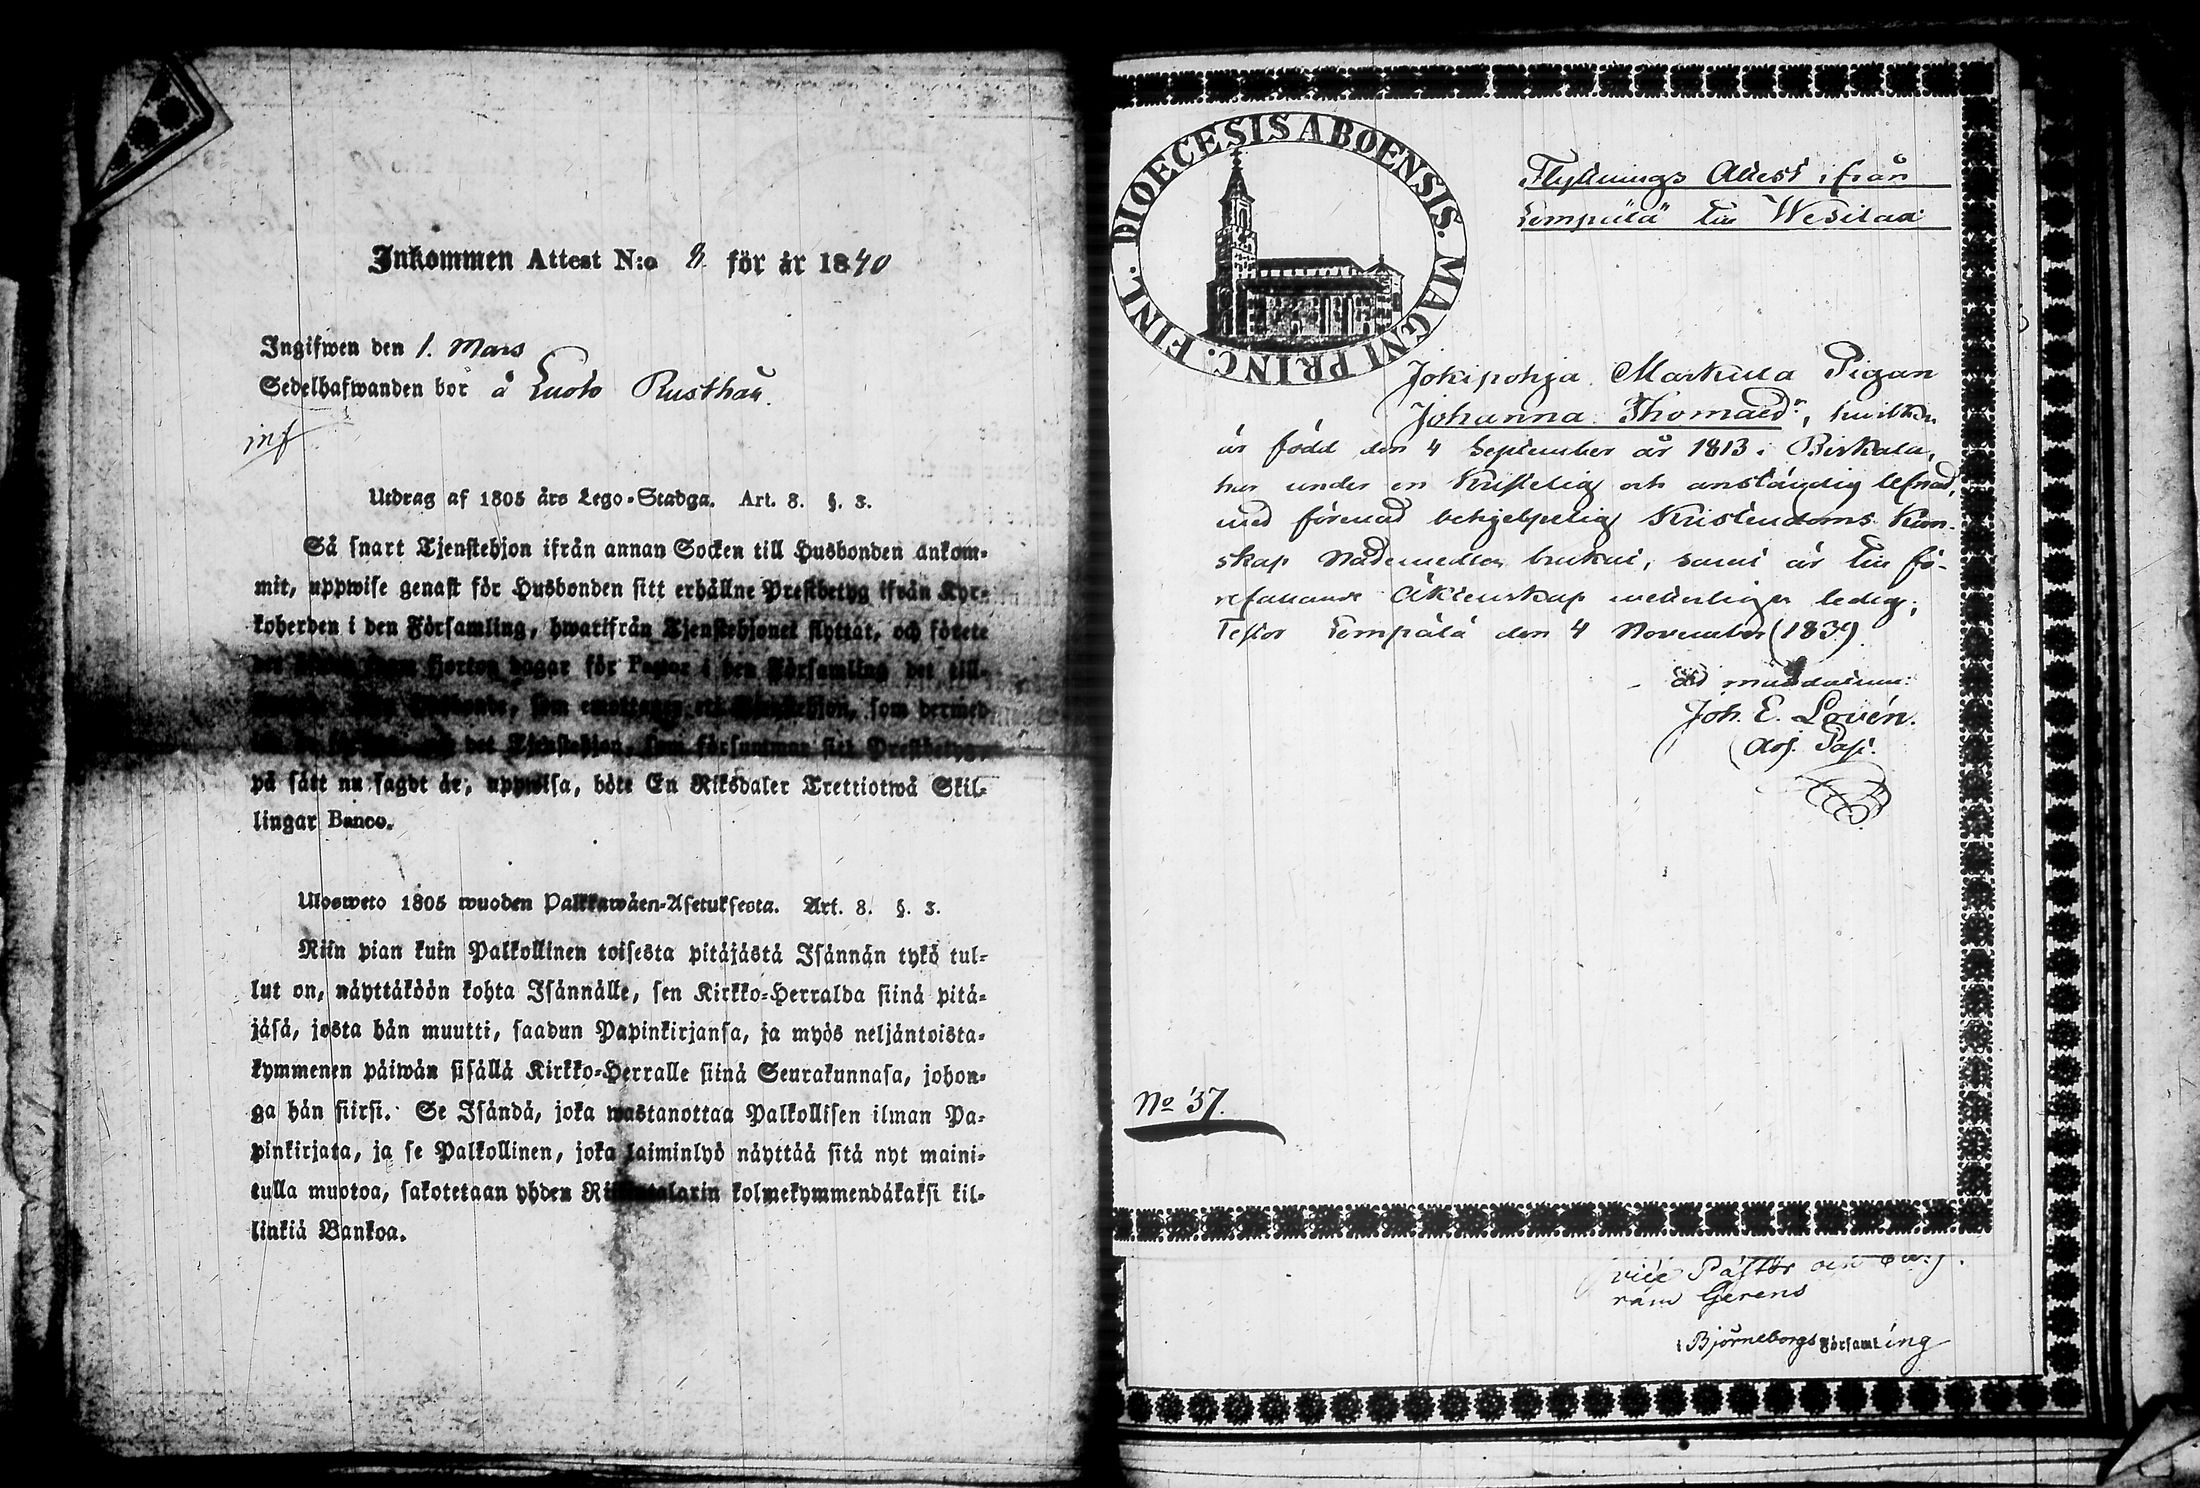 Inkommen Attest N:o 8 för år 1840
Ingifwen den 1. Mars
Sedelhafwanden bor å Luoto Rusthåll.
inf
Utdrag af 1805 års Lego-Stadga. Art. 8. §. 3.
Så snart Tjenstehjon ifrån annan Socken till Husbonden ankom-
mit, uppwise genast för Husbonden sitt erhållne Prestbetyg ifrån Kyr-
koherden i den Församling, hwarifrån Tjenstehjonet flyttat, och förete
fjorton dagar för Pastor i den Församling det till-
som emottager ett Tjenstehjon, som dermed
det Tjenstehjon, som försummar sitt Prestbetyg,
på sätt nu sagdt är, uppwisa, böte En Riksdaler Trettiotwå Skil-
lingar Banco.
Ulosweto 1805 wuoden Palkkawäen-Asetuksesta. Art. 8. §. 3.
Niin pian kuin Palkollinen toisesta pitäjästä Isännän tykö tul-
lut on, näyttäköön kohta Isännälle, sen Kirkko-Herralda siinä pitä-
jäsä, josta hän muutti, saadun Papinkirjansa, ja myös neljäntoista-
kymmenen päiwän sisällä Kirkko-Herralle siinä Seurakunnasa, johon-
ga hän siirsi. Se Isändä, joka wastanottaa Palkollisen ilman Pa-
pinkirjata, ja se Palkollinen, joka laiminlyö näyttää sitä nyt maini-
tulla muotoa, sakotetaan yhden Riksintalarin kolmekymmendäkaksi kil-
linkiä Bankoa.
DIOECESIS ABOENSIS. MAGNI PRINC. FINL.
Flyttnings Attest ifrån
Lempälä till Wesilax
Jokipohja Markula Pigan
Johanna Thomasdr, hvilken
är född den 4 September år 1813 i Birkala,
har under en Kristelig och anständig lefnad,
med förenad behjelpelig Kristendoms Kun-
skap Nådemedlen brukat, samt är till fö-
refallande Äktenskap wederligen ledig;
Testor Lempälä den 4 November (1839)
ad mandatum:
Joh. E. Lovén.
Adj. Past.
No 37.
vice Pastor
Gerens
i Björneborgs Församling